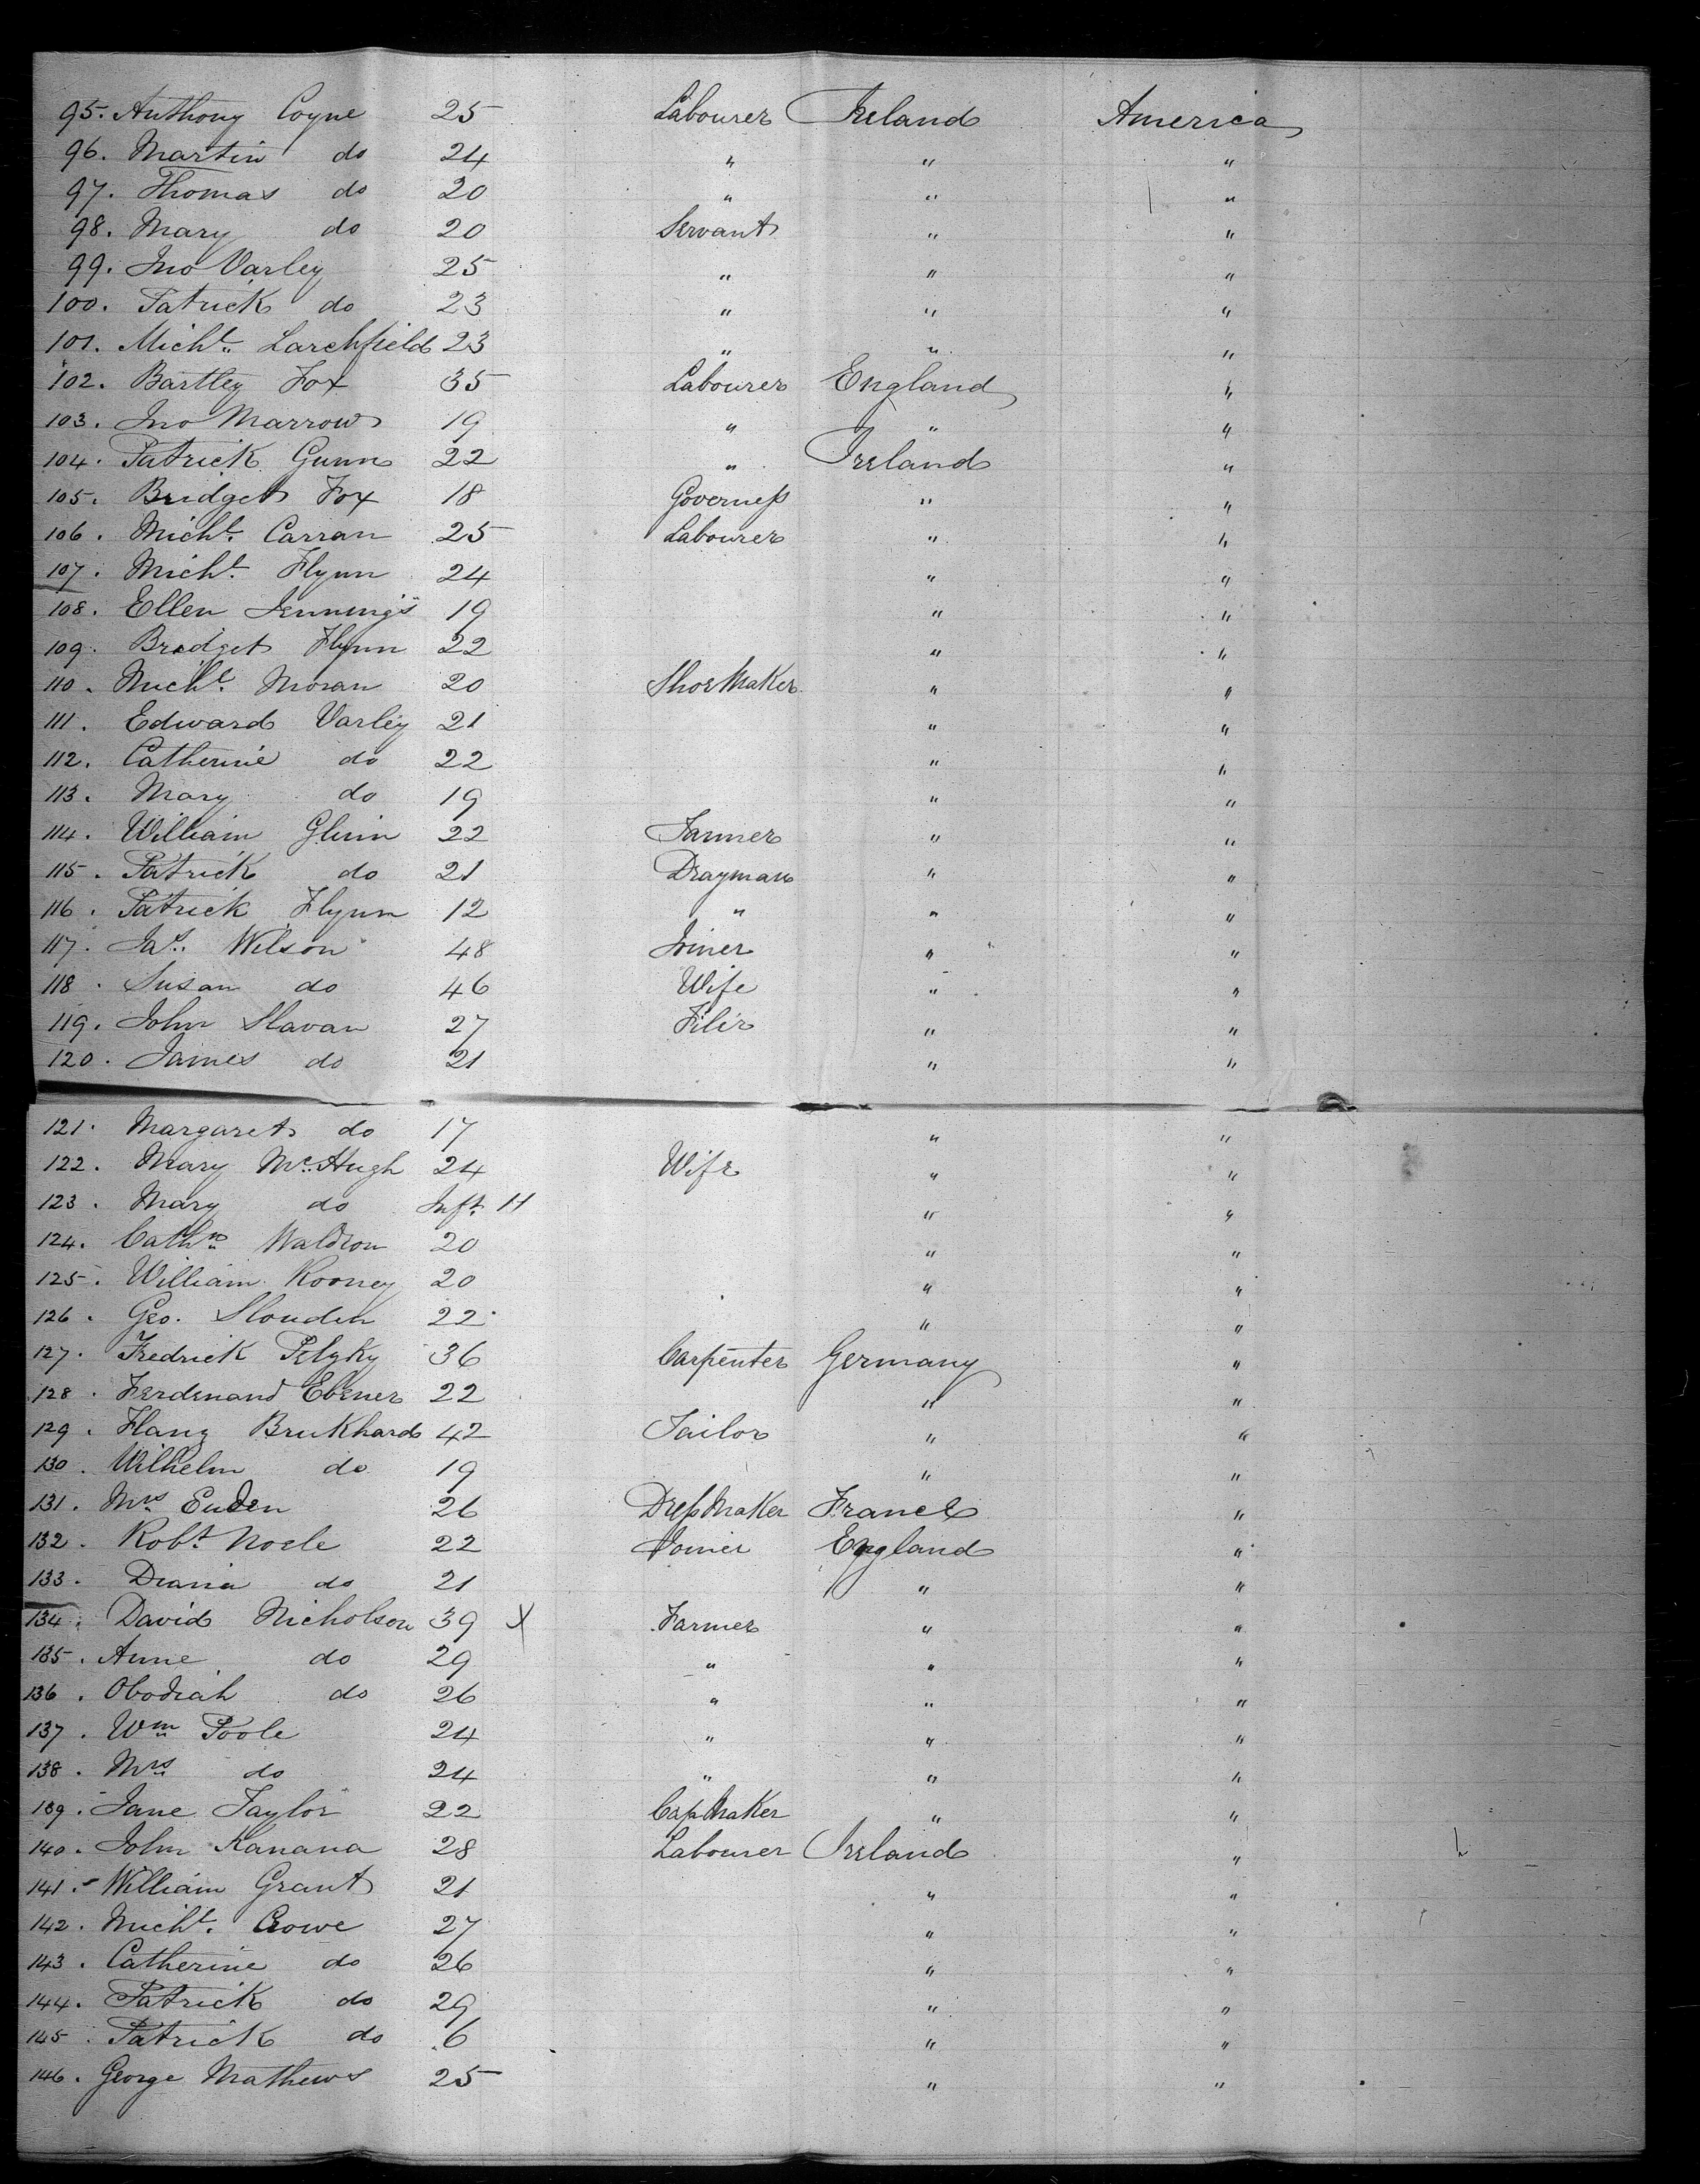 95. Anthony Coyne 25 Labourer Ireland America
96. Martin do 24 " " "
97. Thomas do 20 " " "
98. Mary do 20 Servant " "
99. Jno Varley 25 " " "
100. Patrick do 23 " " "
101. Michl. Larchfield 23 " " "
102. Bartley Fox 35 Labourer England "
103. Jno Marrow 19 " " "
104. Patrick Gunn 22 " Ireland "
105. Bridget Fox 18 Governess " "
106. Michl. Carran 25 Labourer " "
107. Michl. Flynn 24 " "
108. Ellen Jennings 19 " "
109. Bridget Flynn 22 " "
110. Michl. Moran 20 Shoe Maker " "
111. Edward Varley 21 " "
112. Catherine do 22 " "
113. Mary do 19 " "
114. William Glinn 22 Farmer " "
115. Patrick do 21 Drayman " "
116. Patrick Flynn 12 " " "
117. Jas. Wilson 48 Joiner " "
118. Susan do 46 Wife " "
119. John Slavan 27 Filer " "
120. James do 21 " "
121. Margaret do 17 " "
122. Mary McHugh 24 Wife " "
123. Mary do Inft. 11 " "
124. Cathne Waldron 20 " "
125. William Rooney 20 " "
126. Geo. Slouden 22 " "
127. Fredrick 36 Carpenter Germany "
128. Ferdenand Ebener 22 " "
129. Brukhard 42 Tailor " "
130. Wilhelm do 19 " "
131. Mrs Euden 26 Dress Maker France "
132. Robt Noele 22 Joiner England "
133. Diana do 21 " "
134. David Nicholson 39 X Farmer " "
135. Anne do 29 " " "
136. Obodiah do 26 " " "
137. Wm Poole 24 " " "
138. Mrs do 24 " " "
139. Jane Taylor 22 Cap Maker " "
140. John Kanana 28 Labourer Ireland "
141. William Grant 21 " "
142. Michl. Crowe 27 " "
143. Catherine do 26 " "
144. Patrick do 29 " "
145. Patrick do 6 " "
146. George Mathews 25 " "